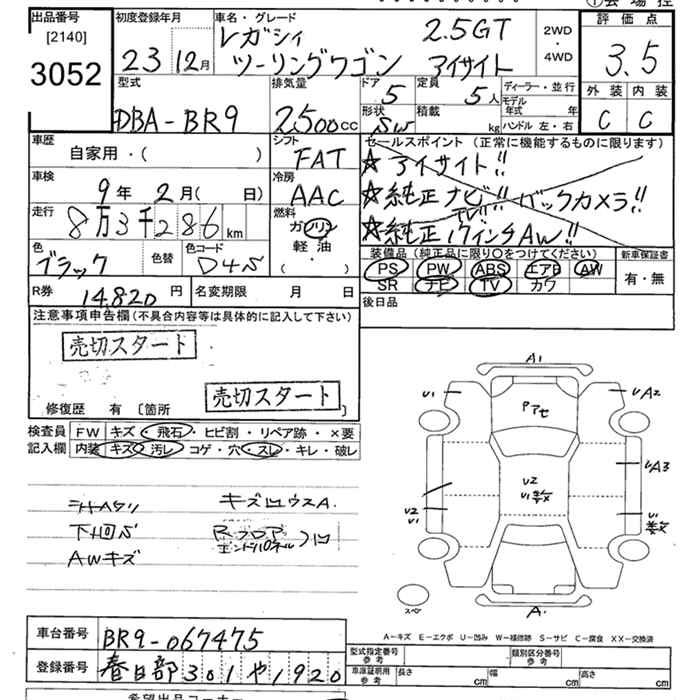 ①会場控
出品番号
[2140]
3052
初度登録年月
23 12月
車名・グレード
レガシィ 2.5GT
ツーリングワゴン アイサイト
2WD
・
4WD
評価点
3.5
外装 内装
C C
型式
DBA-BR9
排気量
2,500cc
ドア
5
定員
5人
形状
SW
積載
kg
ディーラー・並行
モデル
年式 年
ハンドル 左・右
車歴
自家用・( )
シフト
FAT
セールスポイント(正常に機能するものに限ります)
★アイサイト!!
★純正ナビ!! バックカメラ!!
TV!!
★純正17インチAW!!
車検
9年 2月( 日)
冷房
AAC
走行
8万3千286km
燃料
ガソリン
軽油
・( )
色
ブラック
色替
色コード
D4S
装備品(純正品に限り○をつけてください)
PS PW ABS エアB AW
SR ナビ TV カワ
新車保証書
有・無
R券 14,820円
名変期限 月 日
後日品
注意事項申告欄(不具合内容等は具体的に記入して下さい)
売切スタート
売切スタート
修復歴 有 [箇所 ]
検査員
記入欄
FW キズ・飛石・ヒビ割・リペア跡・×要
内装 キズ・汚レ・コゲ・穴・スレ・キレ・破レ
下回S
AWキズ
キズ凹ウスA.
Rフロア
エンドパネル 凹
A1
U1
A2
アアセ
U2
A3
U2
U1
U1
A.
スペ
A-キズ E-エクボ U-凹み W-補修跡 S-サビ C-腐食 XX-交換済
車台番号 BR9-067475
登録番号 春日部301や1920
型式指定番号
参考
類別区分番号
参考
車庫証明用
参考
長さ cm 幅 cm 高さ cm
希望出品コーナー